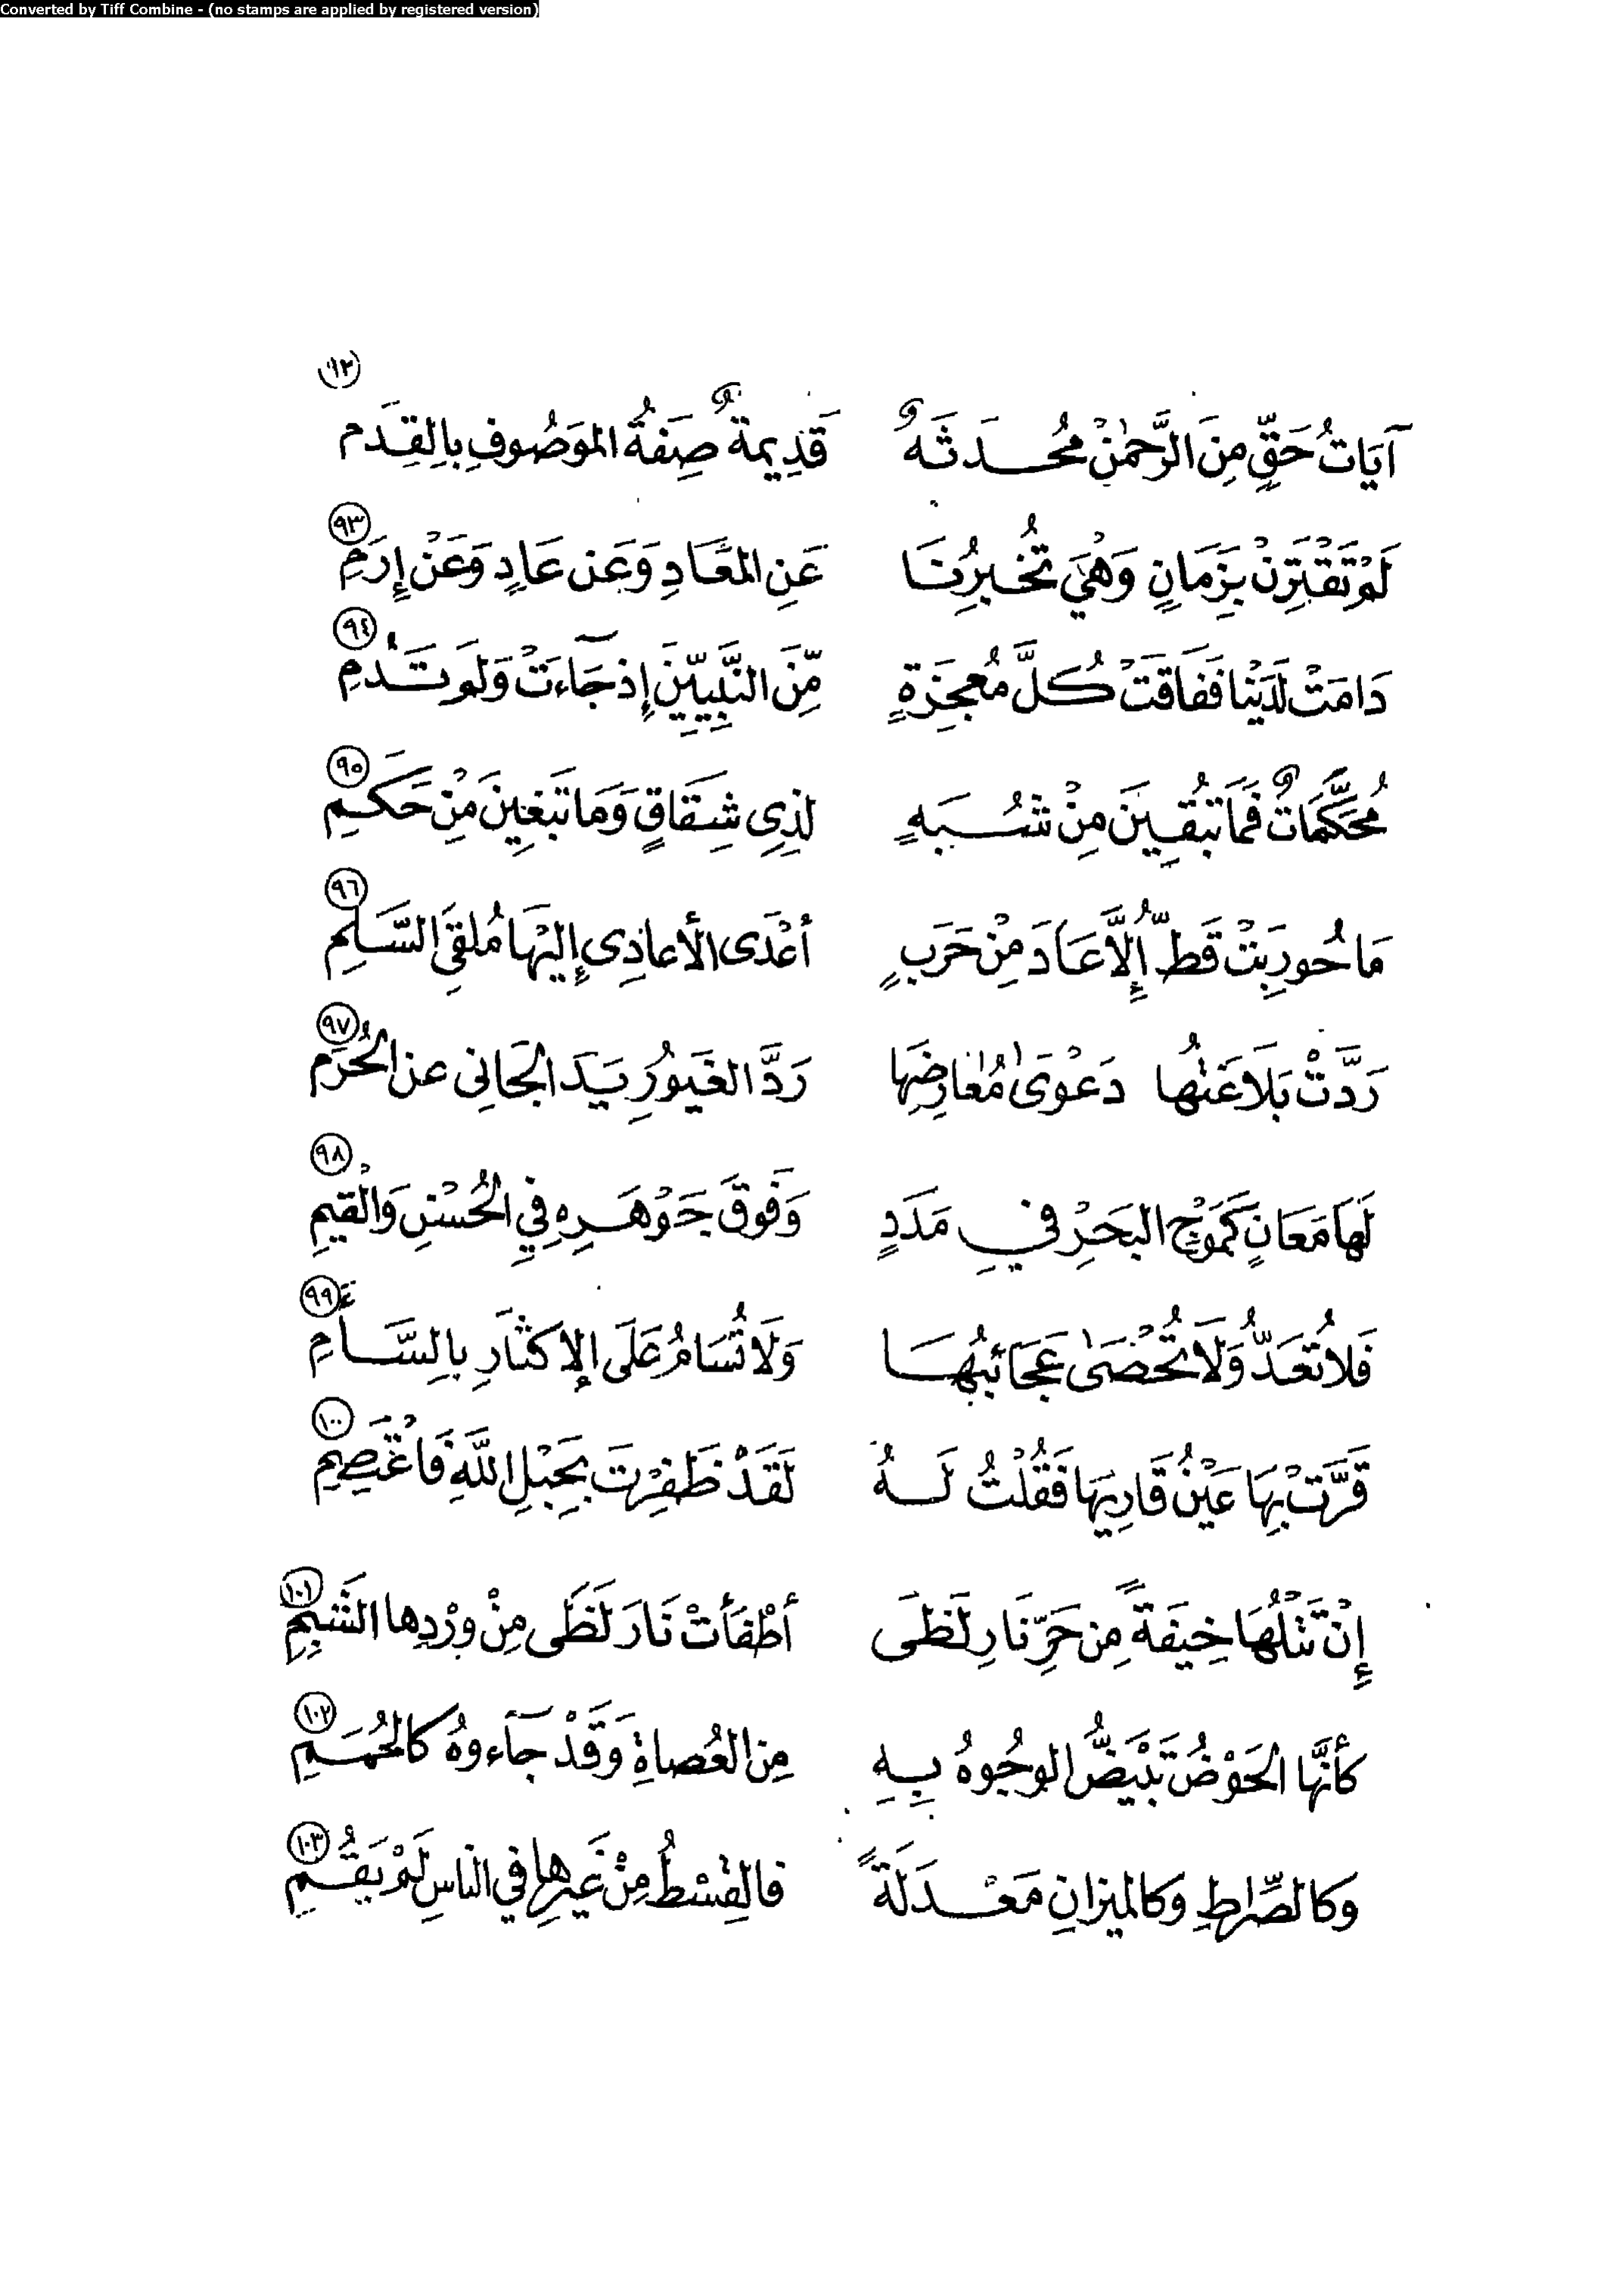 Converted by Tiff Combine - (no stamps are applied by registered version)
٩٢
آيَاتُ حَقٍّ مِنَ الرَّحْمٰنِ مُحْدَثَةٌ قَدِيمَةٌ صِفَةُ المَوْصُوفِ بِالقِدَمِ
٩٣
لَمْ تَقْتَرِنْ بِزَمَانٍ وَهْيَ تُخْبِرُنَا عَنِ المَعَادِ وَعَنْ عَادٍ وَعَنْ إِرَمِ
٩٤
دَامَتْ لَدَيْنَا فَفَاقَتْ كُلَّ مُعْجِزَةٍ مِّنَ النَّبِيِّينَ إِذْ جَآءَتْ وَلَمْ تَدُمِ
٩٥
مُحَكَّمَاتٌ فَمَا تُبْقِينَ مِنْ شُبَهٍ لِذِي شِقَاقٍ وَمَا تَبْغِينَ مِنْ حَكَمِ
٩٦
مَا حُورِبَتْ قَطُّ إِلَّا عَادَ مِنْ حَرَبٍ أَعْدَى الأَعَادِي إِلَيْهَا مُلْقِيَ السَّلَمِ
٩٧
رَدَّتْ بَلَاغَتُهَا دَعْوَىٰ مُعَارِضِهَا رَدَّ الغَيُورِ يَدَ الجَانِي عَنِ الحُرَمِ
٩٨
لَهَا مَعَانٍ كَمَوْجِ البَحْرِ فِي مَدَدٍ وَفَوْقَ جَوْهَرِهِ فِي الحُسْنِ وَالْقِيَمِ
٩٩
فَلَا تُعَدُّ وَلَا تُحْصَىٰ عَجَائِبُهَا وَلَا تُسَامُ عَلَى الإِكْثَارِ بِالسَّأَمِ
١٠٠
قَرَّتْ بِهَا عَيْنُ قَارِيهَا فَقُلْتُ لَهُ لَقَدْ ظَفِرْتَ بِحَبْلِ اللَّهِ فَاعْتَصِمِ
١٠١
إِنْ تَتْلُهَا خِيفَةً مِنْ حَرِّ نَارِ لَظَى أَطْفَأْتَ نَارَ لَظَى مِنْ وِرْدِهَا الشَّبِمِ
١٠٢
كَأَنَّهَا الحَوْضُ تَبْيَضُّ الوُجُوهُ بِهِ مِنَ العُصَاةِ وَقَدْ جَآءوهُ كَالحُمَمِ
١٠٣
وَكَالصِّرَاطِ وَكَالمِيزَانِ مَعْدَلَةً فَالقِسْطُ مِنْ غَيْرِهَا فِي النَّاسِ لَمْ يَقُمِ